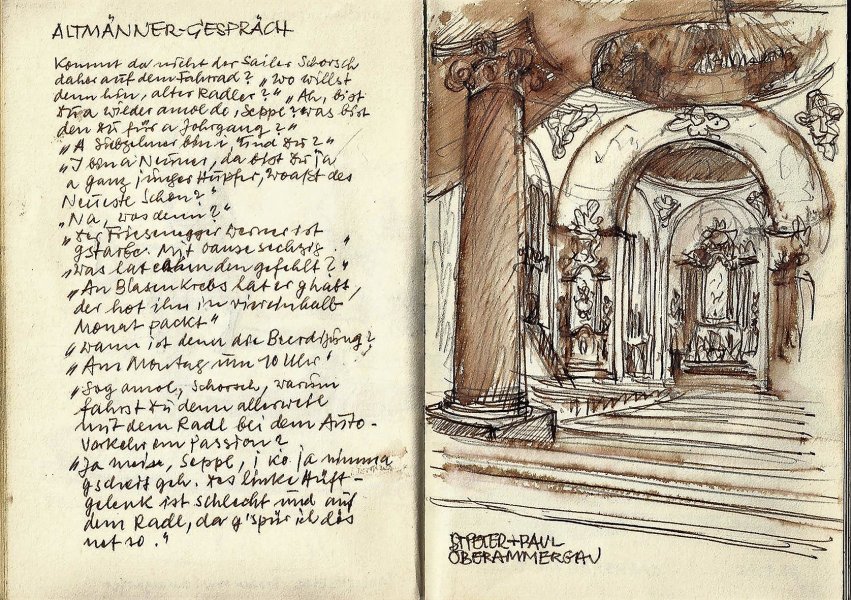 ALTMÄNNER-GESPRÄCH
Kommt da nicht der Sailer Schorsch
daher auf dem Fahrrad? „Wo willst
denn hin, alter Radler?" „Ah, bist
du a wieder amol do, Seppl? Was bist
den du für a Johrgang?"
„A Siebzehner bin i, und du?"
„I bin a Neuner, da bist du ja
a ganz junger Hupfer, woaßt des
Neueste schon?"
„Na, was denn?"
„Der Friesenegger Werner ist
gstarbe. Mit
„Was hat eahm den gefehlt?"
„An Blasenkrebs hat er ghabt,
der hot ihn in viereinhalb
Monat packt"
„Wann ist denn die Beerdigung?
„Am Montag um 10 Uhr"
„Sog amol, Schorsch, warum
fahrst du denn allerweil
mit dem Radl bei dem Auto-
Verkehr Passion?
„Ja meise, Seppl, i ko ja nimma
gscheit geh. Das linke Hüft-
gelenk ist schlecht und auf
dem Radl, da g'spür ich des
net so."
ST PETER + PAUL
OBERAMMERGAU